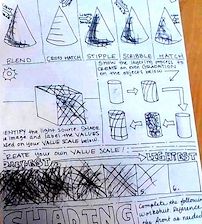 BLEND
CROSS HATCH
STIPPLE
SCRIBBLE
HATCH
SHOW the layering process to
CREATE an even GRADATION
on the objects below
IDENTIFY the light source. Shade
image and label the VALUES
based on your VALUE SCALE below!
CREATE your own VALUE SCALE!
DARKEST
LIGHTEST
5.
6.
SHADING
Complete the following
worksheet. Reference
the front as needed